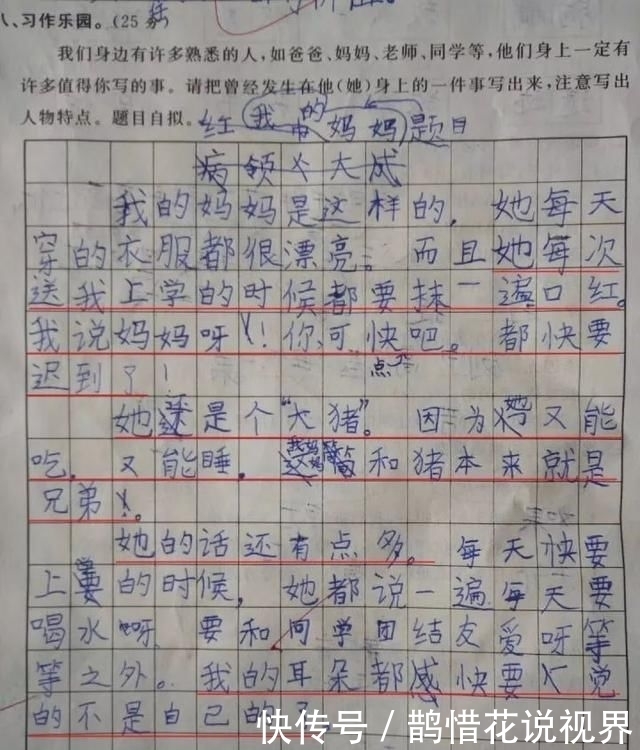 八、习作乐园。(25分)
我们身边有许多熟悉的人,如爸爸、妈妈、老师、同学等,他们身上一定有
许多值得你写的事。请把曾经发生在他(她)身上的一件事写出来,注意写出
人物特点。题目自拟。
红 我的妈妈 题目
病领人大成
我的妈妈是这样的,她每天
穿的衣服都很漂亮。而且她每次
送我上学的时候都要抹一遍口红。
我说妈妈呀!你可快点吧。都快要
迟到了!
她还是个“大猪”。因为她又能
吃,又能睡。我妈妈简和猪本来就是
兄弟。
她的话还有点多。每天快要
上学的时候,她都说一遍每天要
喝水呀要和同学团结友爱呀等
等之外。我的耳朵都感快要觉
的不是自己的了。
快传号 / 鹊惜花说视界